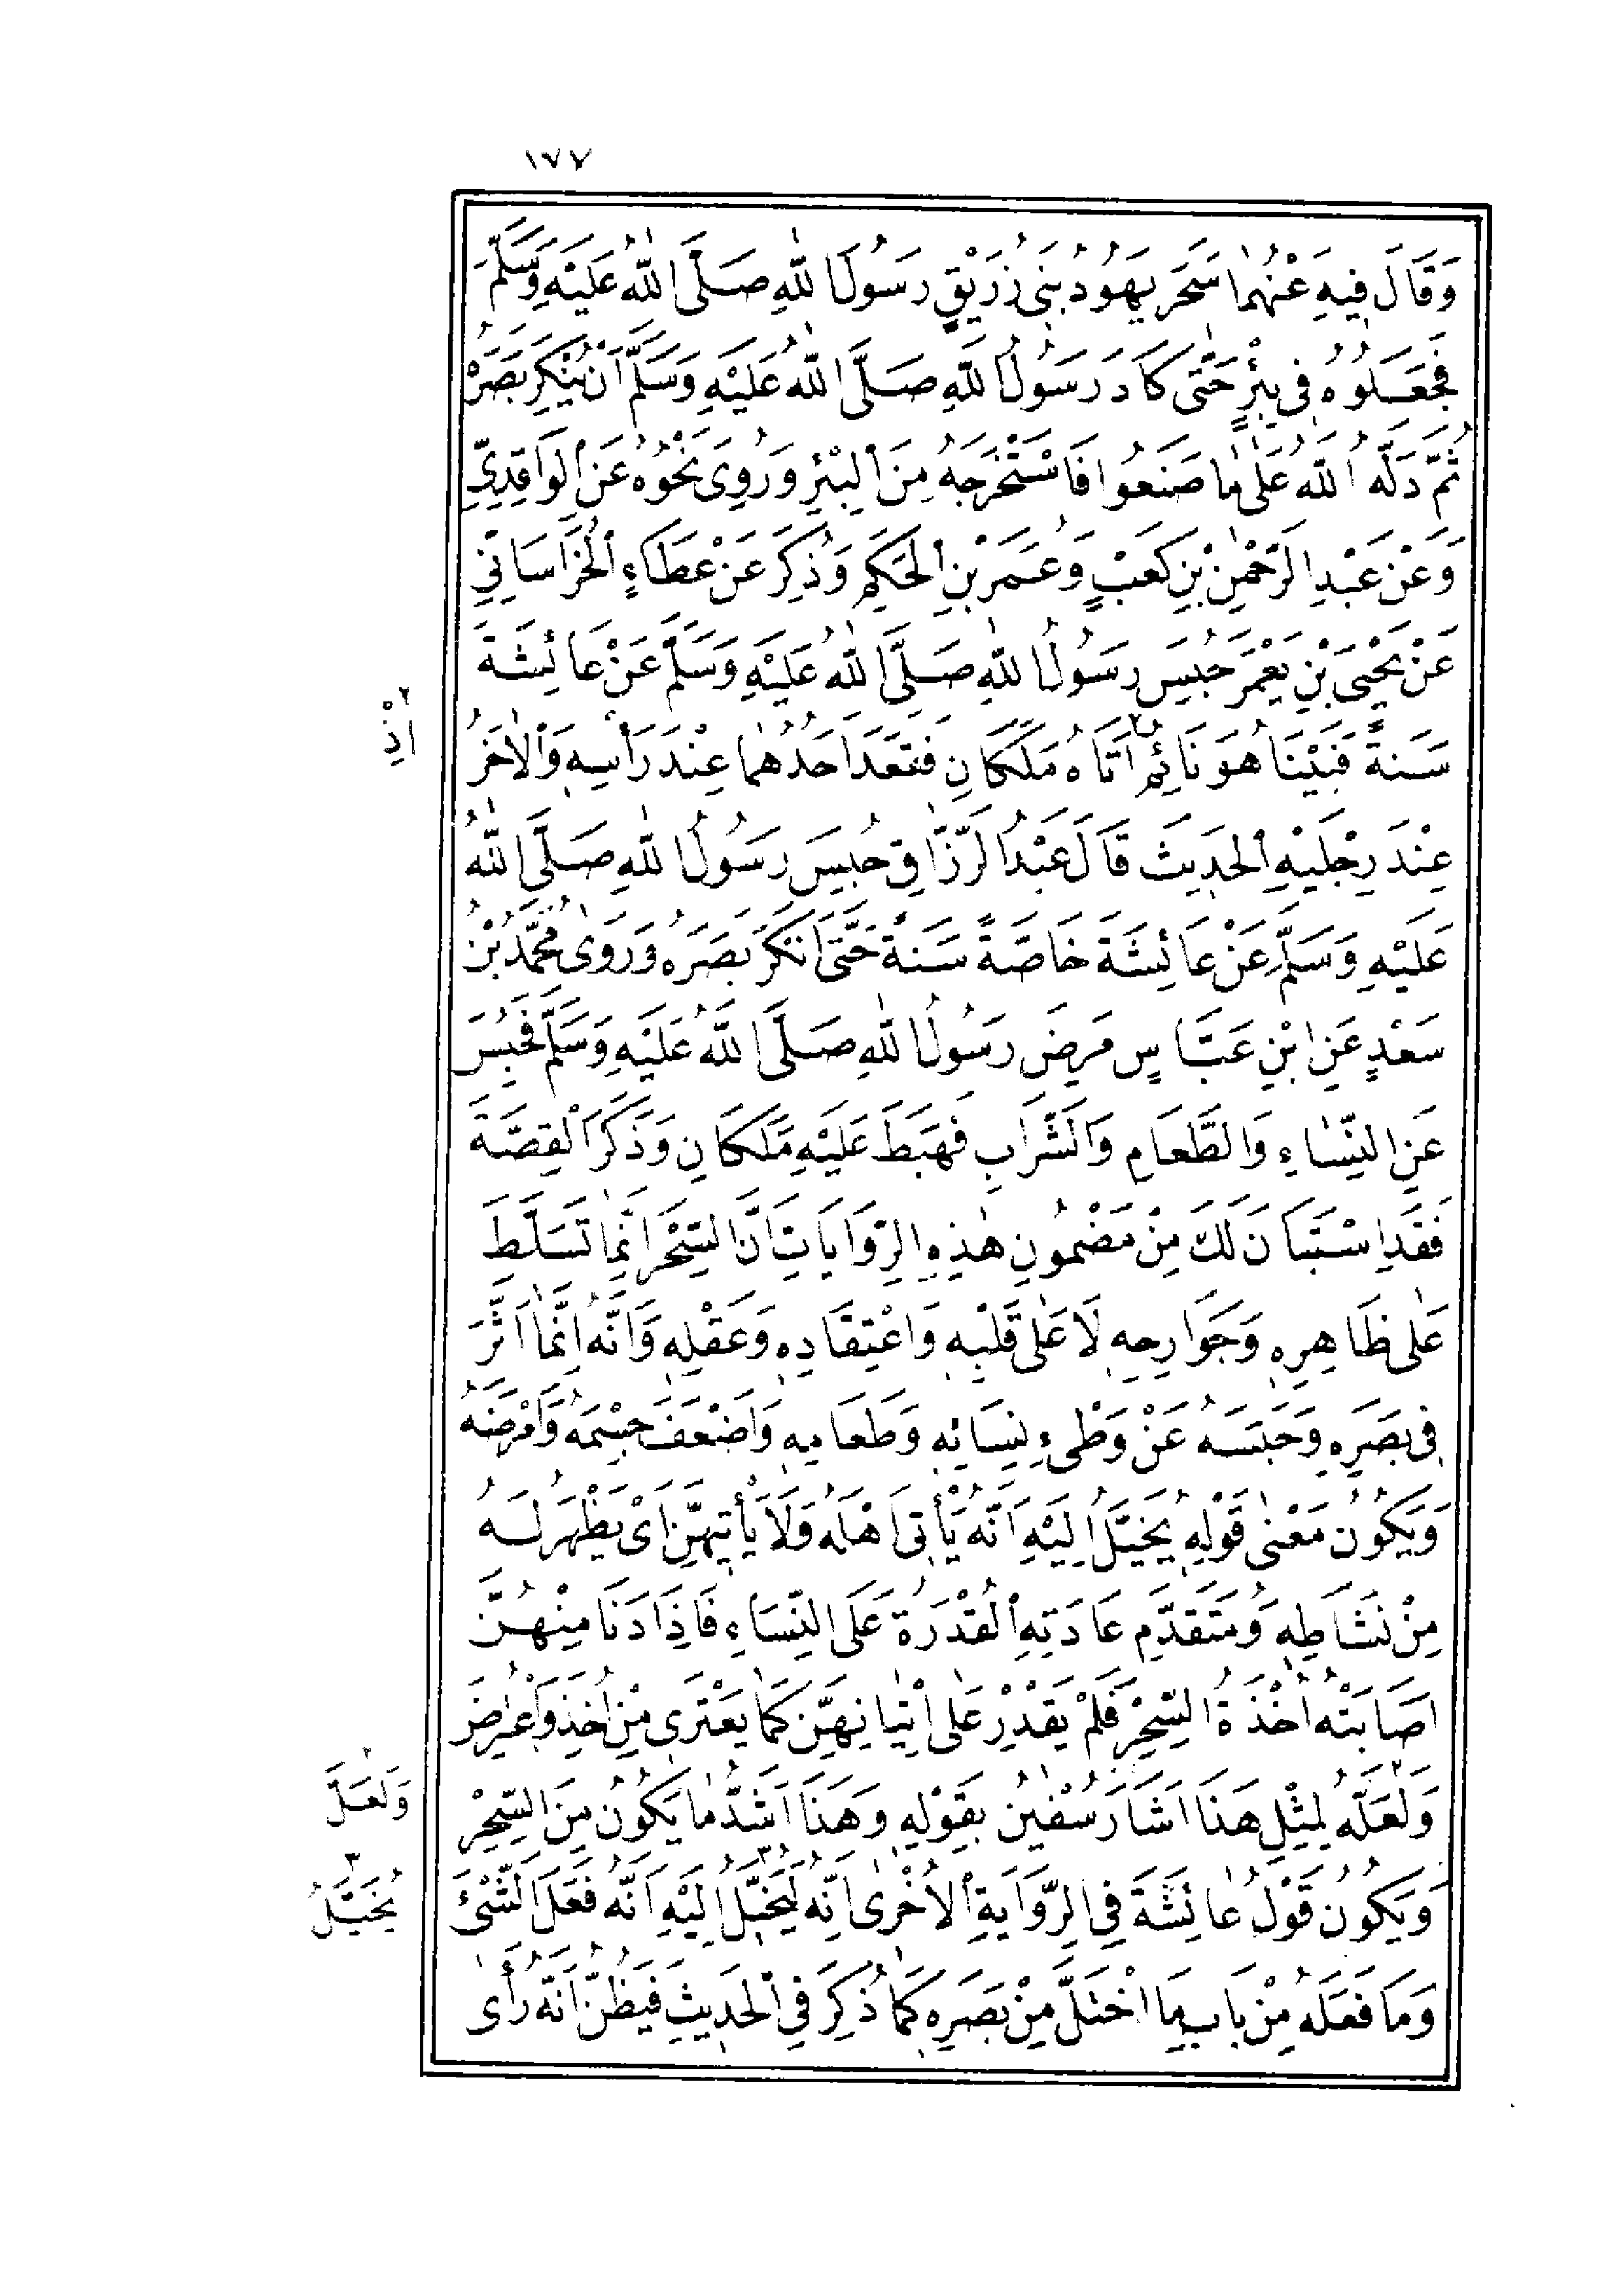 ١٧٧
وَقَالَ فِيهِ عَنْهُمَا سَحَرَ يَهُودُ بَنِى زُرَيْقٍ رَسُولَ اللّٰهِ صَلَّى اللّٰهُ عَلَيْهِ وَسَلَّمَ
فَجَعَلُوهُ فِى بِئْرٍ حَتّٰى كَادَ رَسُولُ اللّٰهِ صَلَّى اللّٰهُ عَلَيْهِ وَسَلَّمَ اَنْ يُنْكِرَ بَصَرَهُ
ثُمَّ دَلَّهُ اللّٰهُ عَلٰى مَا صَنَعُوا فَاسْتَخْرَجَهُ مِنَ الْبِئْرِ وَرُوِىَ نَحْوُهُ عَنِ الْوَاقِدِىِّ
وَعَنْ عَبْدِ الرَّحْمٰنِ بْنِ كَعْبٍ وَعُمَرَ بْنِ الْحَكَمِ وَذُكِرَ عَنْ عَطَاءٍ الْخُرَاسَانِىِّ
عَنْ يَحْيَى بْنِ يَعْمَرَ حُبِسَ رَسُولُ اللّٰهِ صَلَّى اللّٰهُ عَلَيْهِ وَسَلَّمَ عَنْ عَائِشَةَ
سَنَةً فَبَيْنَا هُوَ نَائِمٌ اَتَاهُ مَلَكَانِ فَقَعَدَ اَحَدُهُمَا عِنْدَ رَأْسِهِ وَالْاٰخَرُ
اِذْ
عِنْدَ رِجْلَيْهِ الْحَدِيثَ قَالَ عَبْدُ الرَّزَّاقِ حُبِسَ رَسُولُ اللّٰهِ صَلَّى اللّٰهُ
عَلَيْهِ وَسَلَّمَ عَنْ عَائِشَةَ خَاصَّةً سَنَةً حَتّٰى اَنْكَرَ بَصَرَهُ وَرَوٰى مُحَمَّدُ بْنُ
سَعْدٍ عَنِ ابْنِ عَبَّاسٍ مَرِضَ رَسُولُ اللّٰهِ صَلَّى اللّٰهُ عَلَيْهِ وَسَلَّمَ فَحُبِسَ
عَنِ النِّسَاءِ وَالطَّعَامِ وَالشَّرَابِ فَهَبَطَ عَلَيْهِ مَلَكَانِ وَذَكَرَ الْقِصَّةَ
فَقَدِ اسْتَبَانَ لَكَ مِنْ مَضْمُونِ هٰذِهِ الرِّوَايَاتِ اَنَّ السِّحْرَ اِنَّمَا تَسَلَّطَ
عَلٰى ظَاهِرِهِ وَجَوَارِحِهِ لَا عَلٰى قَلْبِهِ وَاعْتِقَادِهِ وَعَقْلِهِ وَاَنَّهُ اِنَّمَا اَثَّرَ
فِى بَصَرِهِ وَحَبَسَهُ عَنْ وَطْىءِ نِسَائِهِ وَطَعَامِهِ وَاَضْعَفَ جِسْمَهُ وَاَمْرَضَهُ
وَيَكُونُ مَعْنٰى قَوْلِهِ يُخَيَّلُ اِلَيْهِ اَنَّهُ يَأْتِى اَهْلَهُ وَلَا يَأْتِيهِنَّ اَىْ يَظْهَرُ لَهُ
مِنْ نَشَاطِهِ وَمُتَقَدِّمِ عَادَتِهِ الْقُدْرَةُ عَلَى النِّسَاءِ فَاِذَا دَنَا مِنْهُنَّ
اَصَابَتْهُ اُخْذَةُ السِّحْرِ فَلَمْ يَقْدِرْ عَلٰى اِتْيَانِهِنَّ كَمَا يَعْتَرِى مَنْ اُخِذَ وَاعْتُرِضَ
وَلَعَلَّهُ لِمِثْلِ هَذَا اَشَارَ سُفْيٰنُ بِقَوْلِهِ وَهَذَا اَشَدُّ مَا يَكُونُ مِنَ السِّحْرِ
وَلَعَلَّ
وَيَكُونُ قَوْلُ عَائِشَةَ فِى الرِّوَايَةِ الْاُخْرٰى اَنَّهُ لَيُخَيَّلُ اِلَيْهِ اَنَّهُ فَعَلَ الشَّىْءَ
يُخَيَّلُ
وَمَا فَعَلَهُ مِنْ بَابِ مَا اخْتَلَّ مِنْ بَصَرِهِ كَمَا ذُكِرَ فِى الْحَدِيثِ فَيَظُنُّ اَنَّهُ رَأٰى